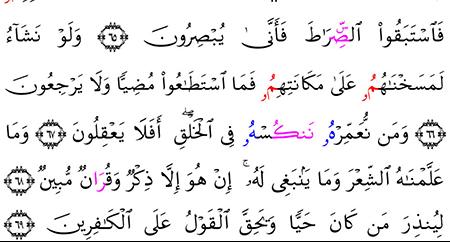 فَٱسْتَبَقُواْ ٱلصِّرَٰطَ فَأَنَّىٰ يُبْصِرُونَ ﴿٦٥﴾ وَلَوْ نَشَآءُ
لَمَسَخْنَٰهُمُۥ عَلَىٰ مَكَانَتِهِمُۥ فَمَا ٱسْتَطَٰعُواْ مُضِيًّا وَلَا يَرْجِعُونَ
﴿٦٦﴾ وَمَن نُّعَمِّرْهُۥ نَنكُسْهُۥ فِى ٱلْخَلْقِۖ أَفَلَا يَعْقِلُونَ ﴿٦٧﴾ وَمَا
عَلَّمْنَٰهُ ٱلشِّعْرَ وَمَا يَنۢبَغِى لَهُۥٓۚ إِنْ هُوَ إِلَّا ذِكْرٌ وَقُرَانٌ مُّبِينٌ ﴿٦٨﴾
لِيُنذِرَ مَن كَانَ حَيًّا وَيَحِقَّ ٱلْقَوْلُ عَلَى ٱلْكَٰفِرِينَ ﴿٦٩﴾